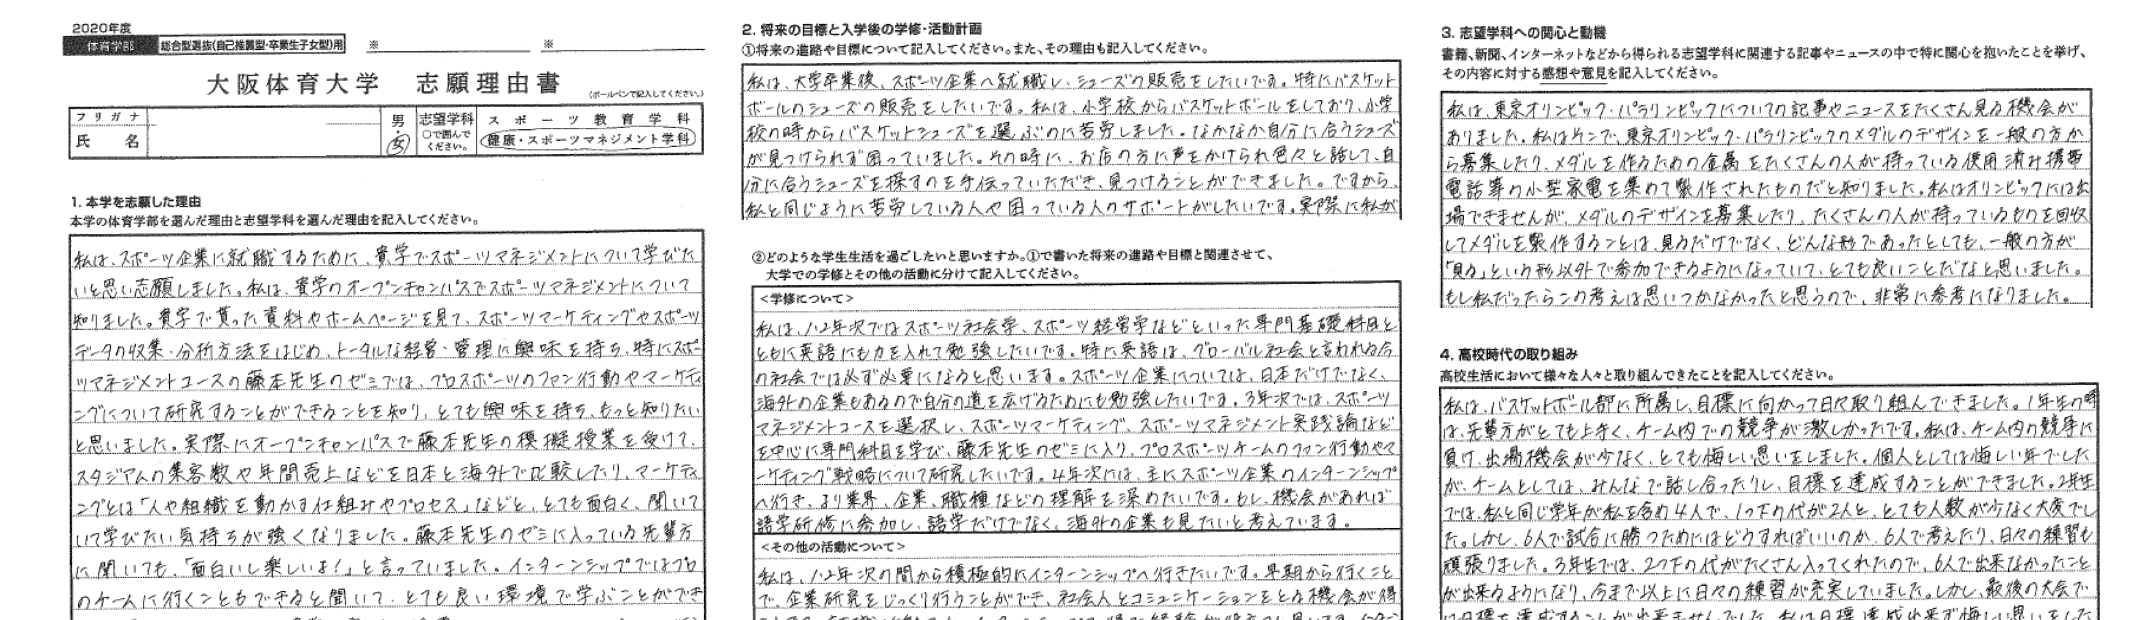 2020年度
体育学部 総合型選抜(自己推薦型・卒業生子女型)用 ※ ※
大阪体育大学 志願理由書
(ボールペンで記入してください。)
フリガナ
氏 名
男・女
志望学科
○で囲んでください。
スポーツ教育学科
健康・スポーツマネジメント学科
1. 本学を志願した理由
本学の体育学部を選んだ理由と志望学科を選んだ理由を記入してください。
私は、スポーツ企業に就職するために、貴学でスポーツマネジメントについて学びた
いと思い志願しました。私は、貴学のオープンキャンパスでスポーツマネジメントについて
知りました。貴学で貰った資料やホームページを見て、スポーツマーケティングやスポーツ
データの収集・分析方法をはじめ、トータルな経営・管理に興味を持ち、特にスポー
ツマネジメントコースの藤本先生のゼミでは、プロスポーツのファン行動やマーケティ
ングについて研究することができることを知り、とても興味を持ち、もっと知りたい
と思いました。実際にオープンキャンパスで藤本先生の模擬授業を受けて、
スタジアムの集客数や年間売上などを日本と海外で比較したり、マーケティ
ングとは「人や組織を動かす仕組みやプロセス」などと、とても面白く、聞いて
いて学びたい気持ちが強くなりました。藤本先生のゼミに入っている先輩方
に聞いても、「面白いし楽しいよ!」と言っていました。インターンシップではプロ
のチームに行くこともできると聞いて、とても良い環境で学ぶことができ
2. 将来の目標と入学後の学修・活動計画
①将来の進路や目標について記入してください。また、その理由も記入してください。
私は、大学卒業後、スポーツ企業へ就職し、シューズの販売をしたいです。特にバスケット
ボールのシューズの販売をしたいです。私は、小学校からバスケットボールをしており、小学
校の時からバスケットシューズを選ぶのに苦労しました。なかなか自分に合うシューズ
が見つけられず困っていました。その時に、お店の方に声をかけられ色々と話して、自
分に合うシューズを探すのを手伝っていただき、見つけることができました。ですから、
私と同じように苦労している人や困っている人のサポートがしたいです。実際に私が
②どのような学生生活を過ごしたいと思いますか。①で書いた将来の進路や目標と関連させて、
大学での学修とその他の活動に分けて記入してください。
<学修について>
私は、1・2年次ではスポーツ社会学、スポーツ経営学などといった専門基礎科目と
ともに英語にも力を入れて勉強したいです。特に英語は、グローバル社会と言われる今
の社会では必ず必要になると思います。スポーツ企業については、日本だけでなく、
海外の企業もあるので自分の道を広げるためにも勉強したいです。3年次では、スポーツ
マネジメントコースを選択し、スポーツマーケティング、スポーツマネジメント実践論など
を中心に専門科目を学び、藤本先生のゼミに入り、プロスポーツチームのファン行動やマ
ーケティング戦略について研究したいです。4年次には、主にスポーツ企業のインターンシップ
へ行き、より業界、企業、職種などの理解を深めたいです。もし、機会があれば
語学研修に参加し、語学だけでなく、海外の企業も見たいと考えています。
<その他の活動について>
私は、1・2年次の間から積極的にインターンシップへ行きたいです。早期から行くこと
で、企業研究をじっくり行うことができ、社会人とコミュニケーションをとる機会が得
3. 志望学科への関心と動機
書籍、新聞、インターネットなどから得られる志望学科に関連する記事やニュースの中で特に関心を抱いたことを挙げ、
その内容に対する感想や意見を記入してください。
私は、東京オリンピック・パラリンピックについての記事やニュースをたくさん見る機会が
ありました。私はそこで、東京オリンピック・パラリンピックのメダルのデザインを一般の方か
ら募集したり、メダルを作るための金属をたくさんの人が持っている使用済み携帯
電話等の小型家電を集めて製作されたものだと知りました。私はオリンピックには出
場できませんが、メダルのデザインを募集したり、たくさんの人が持っているものを回収
してメダルを製作することは、見るだけでなく、どんな形であったとしても、一般の方が
「見る」という形以外で参加できるようになっていて、とても良いことだなと思いました。
もし私だったらこの考えは思いつかなかったと思うので、非常に参考になりました。
4. 高校時代の取り組み
高校生活において様々な人々と取り組んできたことを記入してください。
私は、バスケットボール部に所属し、目標に向かって日々取り組んできました。1年生の時
は、先輩方がとても上手く、チーム内での競争が激しかったです。私は、チーム内の競争に
負け、出場機会が少なく、とても悔しい思いをしました。個人としては悔しい年でした
が、チームとしては、みんなで話し合ったりし、目標を達成することができました。2年生
では、私と同じ学年が私を含め4人で、1つ下の代が2人と、とても人数が少なく大変でし
た。しかし、6人で試合に勝つためにはどうすればいいのか、6人で考えたり、日々の練習も
頑張りました。3年生では、2つ下の代がたくさん入ってくれたので、6人で出来なかったこと
が出来るようになり、今まで以上に日々の練習が充実していました。しかし、最後の大会で
は目標を達成することが出来ませんでした。私は目標達成出来ず悔しい思いをした